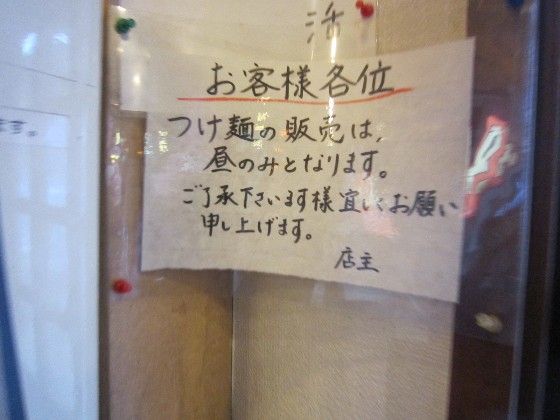 活
お客様各位
つけ麺の販売は、
昼のみとなります。
ご了承下さいます様宜しくお願い
申し上げます。
店主
ます。